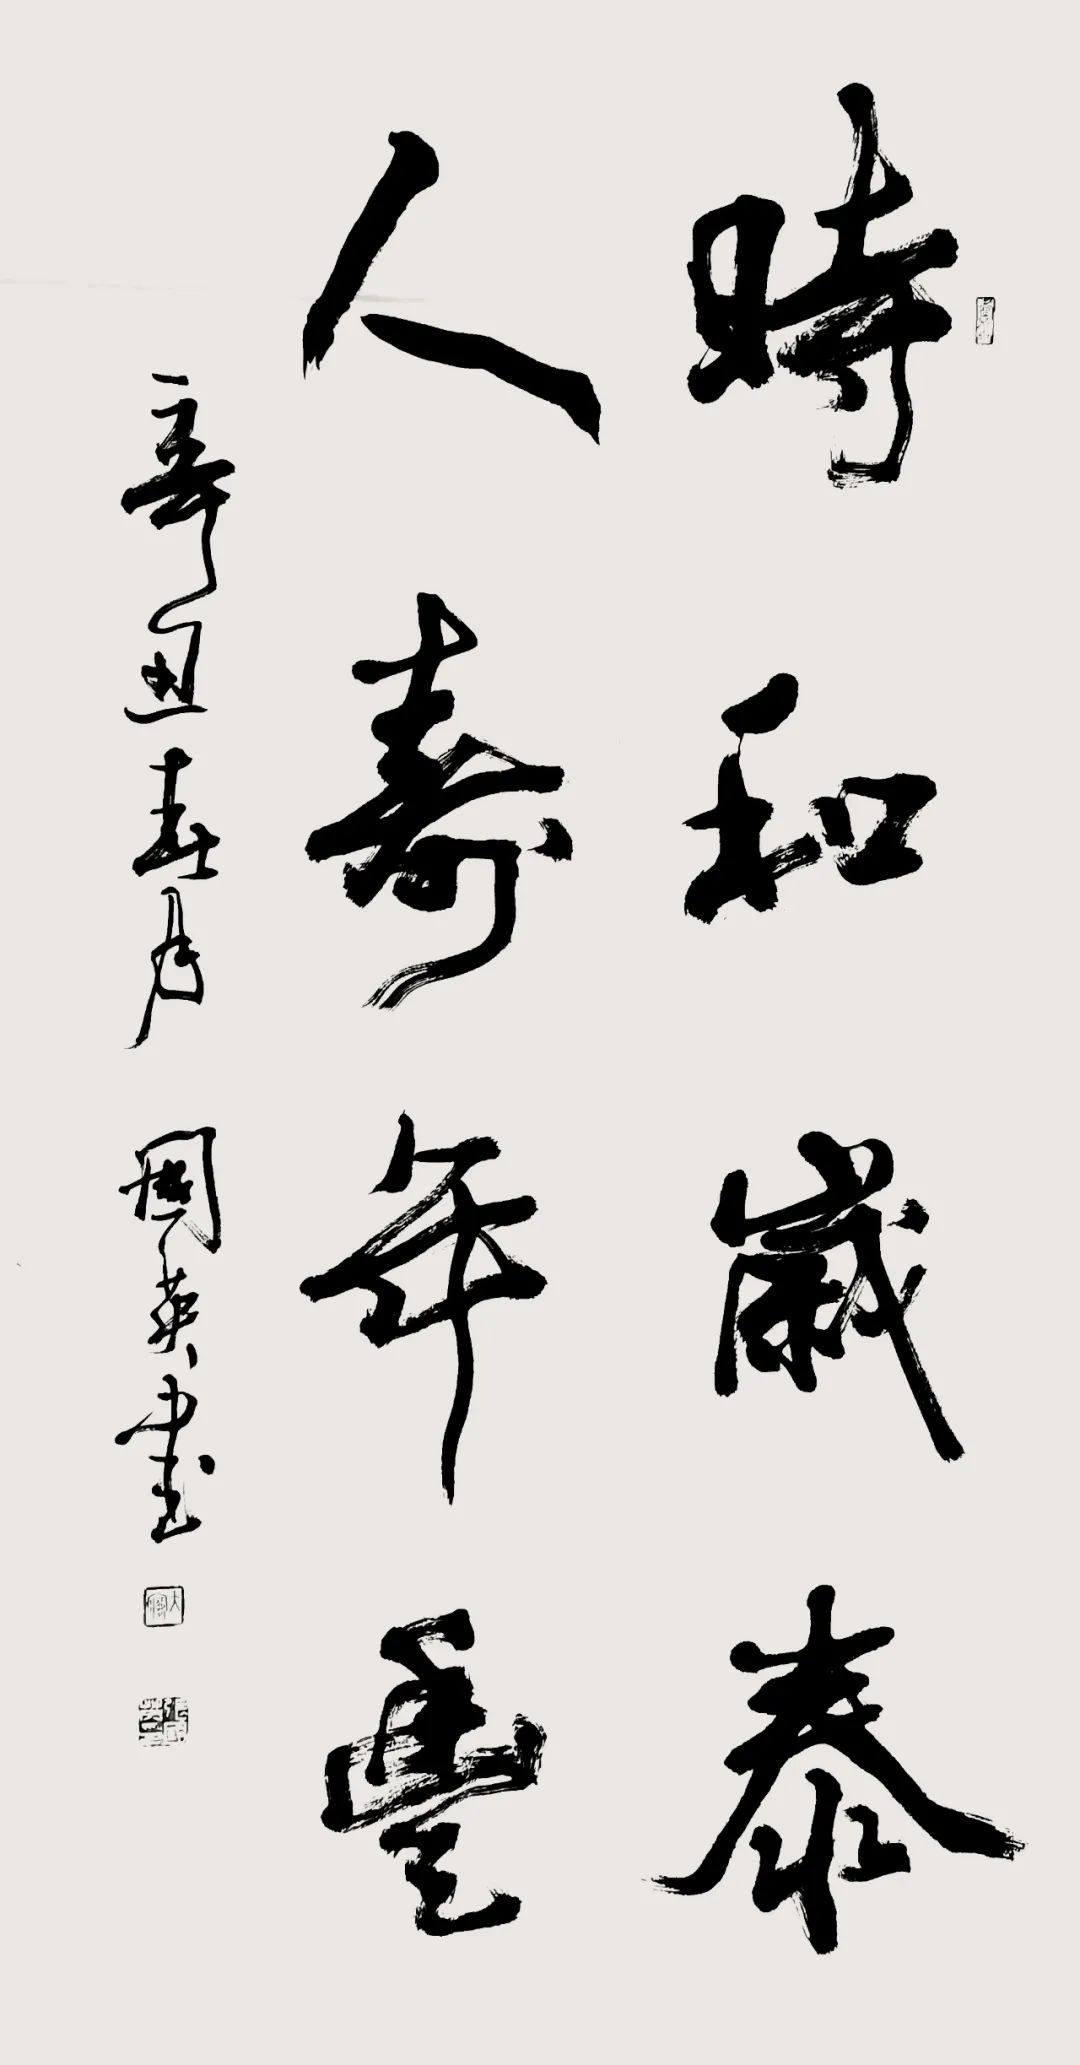 時和歲泰
人壽年豐
辛丑春月 國英書